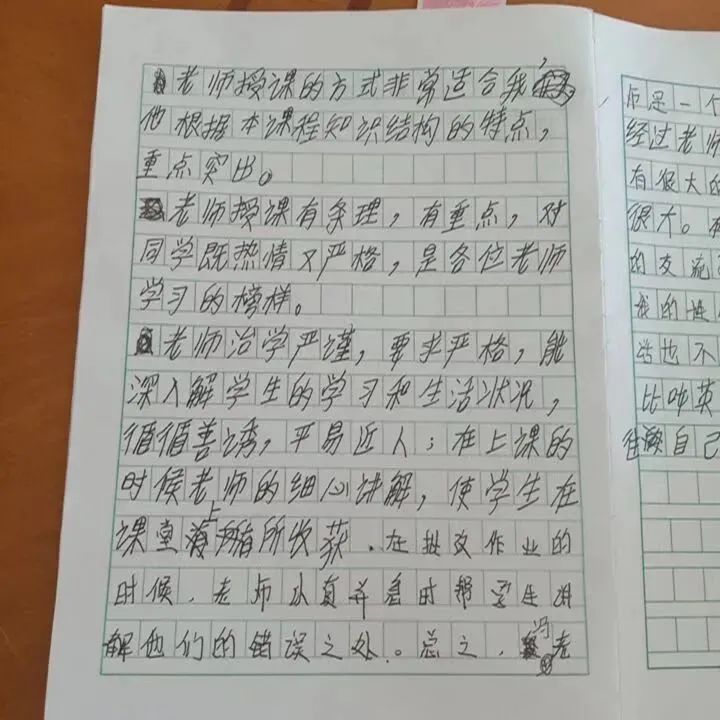 老师授课的方式非常适合我
他根据本课程知识结构的特点，
重点突出。
老师授课有条理，有重点，对
同学既热情又严格，是各位老师
学习的榜样。
老师治学严谨，要求严格，能
深入解学生的学习和生活状况，
循循善诱，平易近人；在上课的
时候老师的细心讲解，使学生在
课堂上有所收获．在批改作业的
时候．老师认真并及时帮学生讲
解他们的错误之处。总之．冯老
师是一个
经过老师
有很大的
很大。
的交流
我的性
苦也不
比如英
往自己